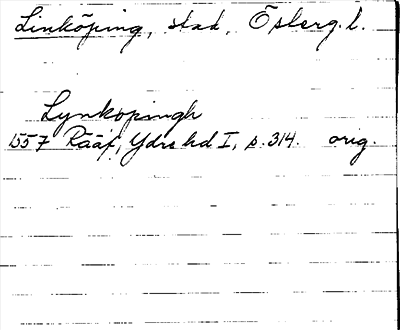 Linköping, stad, Östergl.
Lynkopingh
1557 Rääf, Ydre hd I, s. 314. orig.